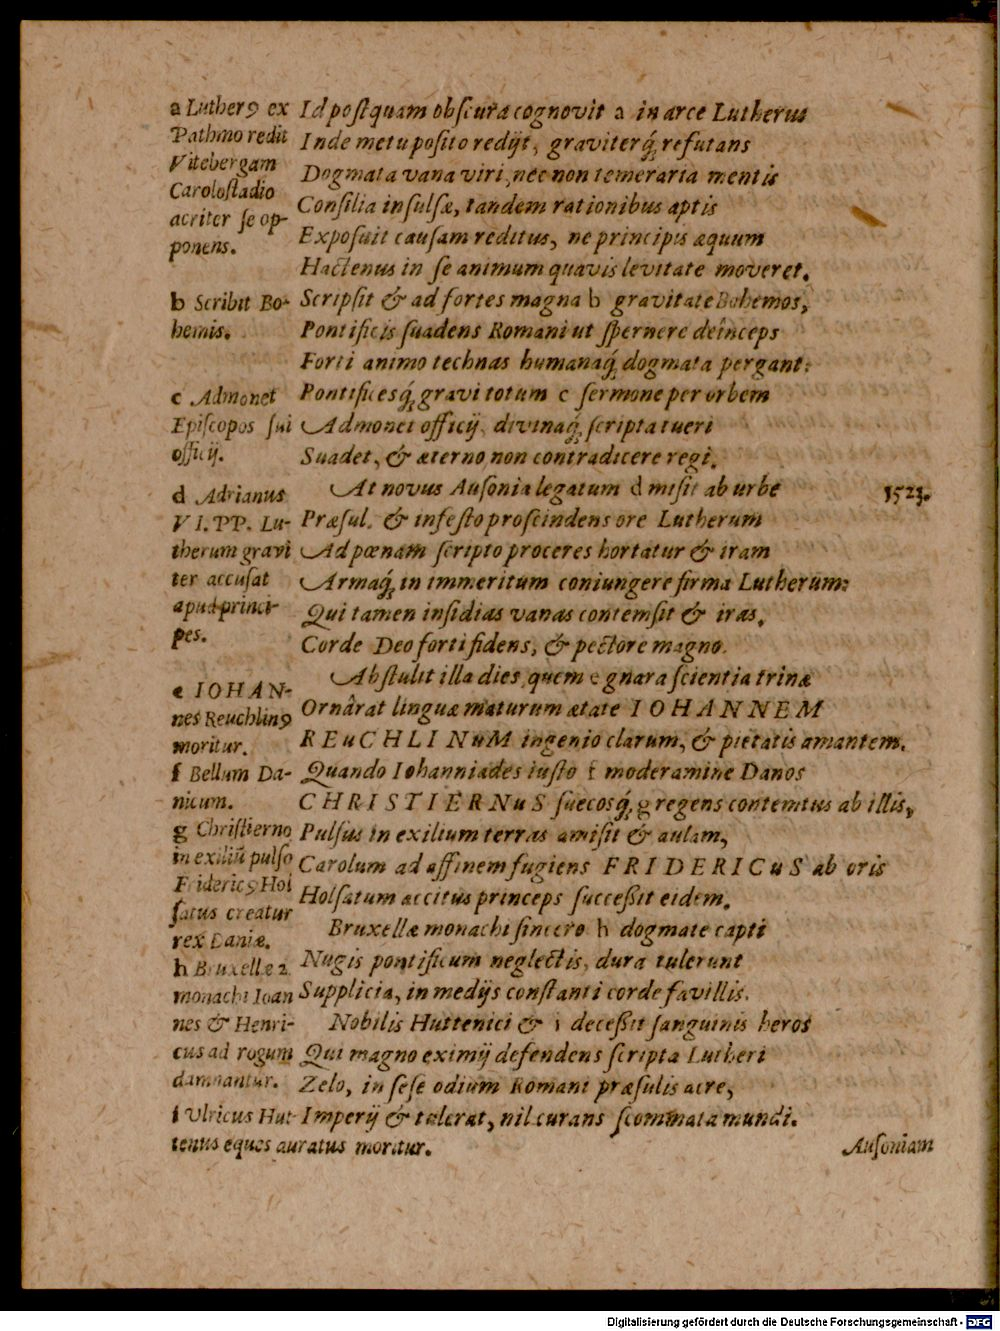 a Lutherꝰ ex
Pathmo redit
Vitebergam
Caroloſtadio
acriter ſe op-
ponens.
b Scribit Bo-
hemis.
c Admonet
Epiſcopos ſui
officij.
d Adrianus
VI. PP. Lu-
therum gravi
ter accuſat
apud princi-
pes.
e IOHAN-
nes Reuchlinꝰ
moritur.
f Bellum Da-
nicum.
g Chriſtierno
in exiliū pulſo
Fridericꝰ Hol
ſatus creatur
rex Daniæ.
h Bruxellæ 2.
monachi Ioan
nes & Henri-
cus ad rogum
damnantur.
i Ulricus Hut-
tenus eques auratus moritur.
Id poſtquam obſcura cognovit a in arce Lutherus
Inde metu poſito redijt, graviterq́; refutans
Dogmata vana viri, nec non temeraria mentis
Conſilia inſulſæ, tandem rationibus aptis
Expoſuit cauſam reditus, ne principis æquum
Hactenus in ſe animum quavis levitate moveret.
Scripſit & ad fortes magna b gravitate Bohemos,
Pontificis ſuadens Romani ut ſpernere deinceps
Forti animo technas humanaq́; dogmata pergant:
Pontificesq́; gravi totum c ſermone per orbem
Admonet officij, divinaq́; ſcripta tueri
Suadet, & æterno non contradicere regi.
At novus Auſonia legatum d miſit ab urbe
1523.
Præſul, & infeſto proſcindens ore Lutherum
Ad pœnam ſcripto proceres hortatur & iram
Armaq́; in immeritum coniungere firma Lutherum:
Qui tamen inſidias vanas contemſit & iras,
Corde Deo forti fidens, & pectore magno.
Abſtulit illa dies, quem e gnara ſcientia trinæ
Ornârat linguæ maturum ætate IOHANNEM
REuCHLINuM ingenio clarum, & pietatis amantem.
Quando Iohanniades iuſto f moderamine Danos
CHRISTIERNuS ſuecosq́; g regens contemtus ab illis,
Pulſus in exilium terras amiſit & aulam,
Carolum ad affinem fugiens FRIDERICuS ab oris
Holſatum accitus princeps ſucceßit eidem.
Bruxellæ monachi ſincero h dogmate capti
Nugis pontificum neglectis, dura tulerunt
Supplicia, in medijs conſtanti corde favillis.
Nobilis Huttenici & i deceßit ſanguinis heros
Qui magno eximij defendens ſcripta Lutheri
Zelo, in ſeſe odium Romani præſulis acre,
Imperij & tulerat, nil curans ſcommata mundi.
Auſoniam
Digitalisierung gefördert durch die Deutsche Forschungsgemeinschaft - DFG